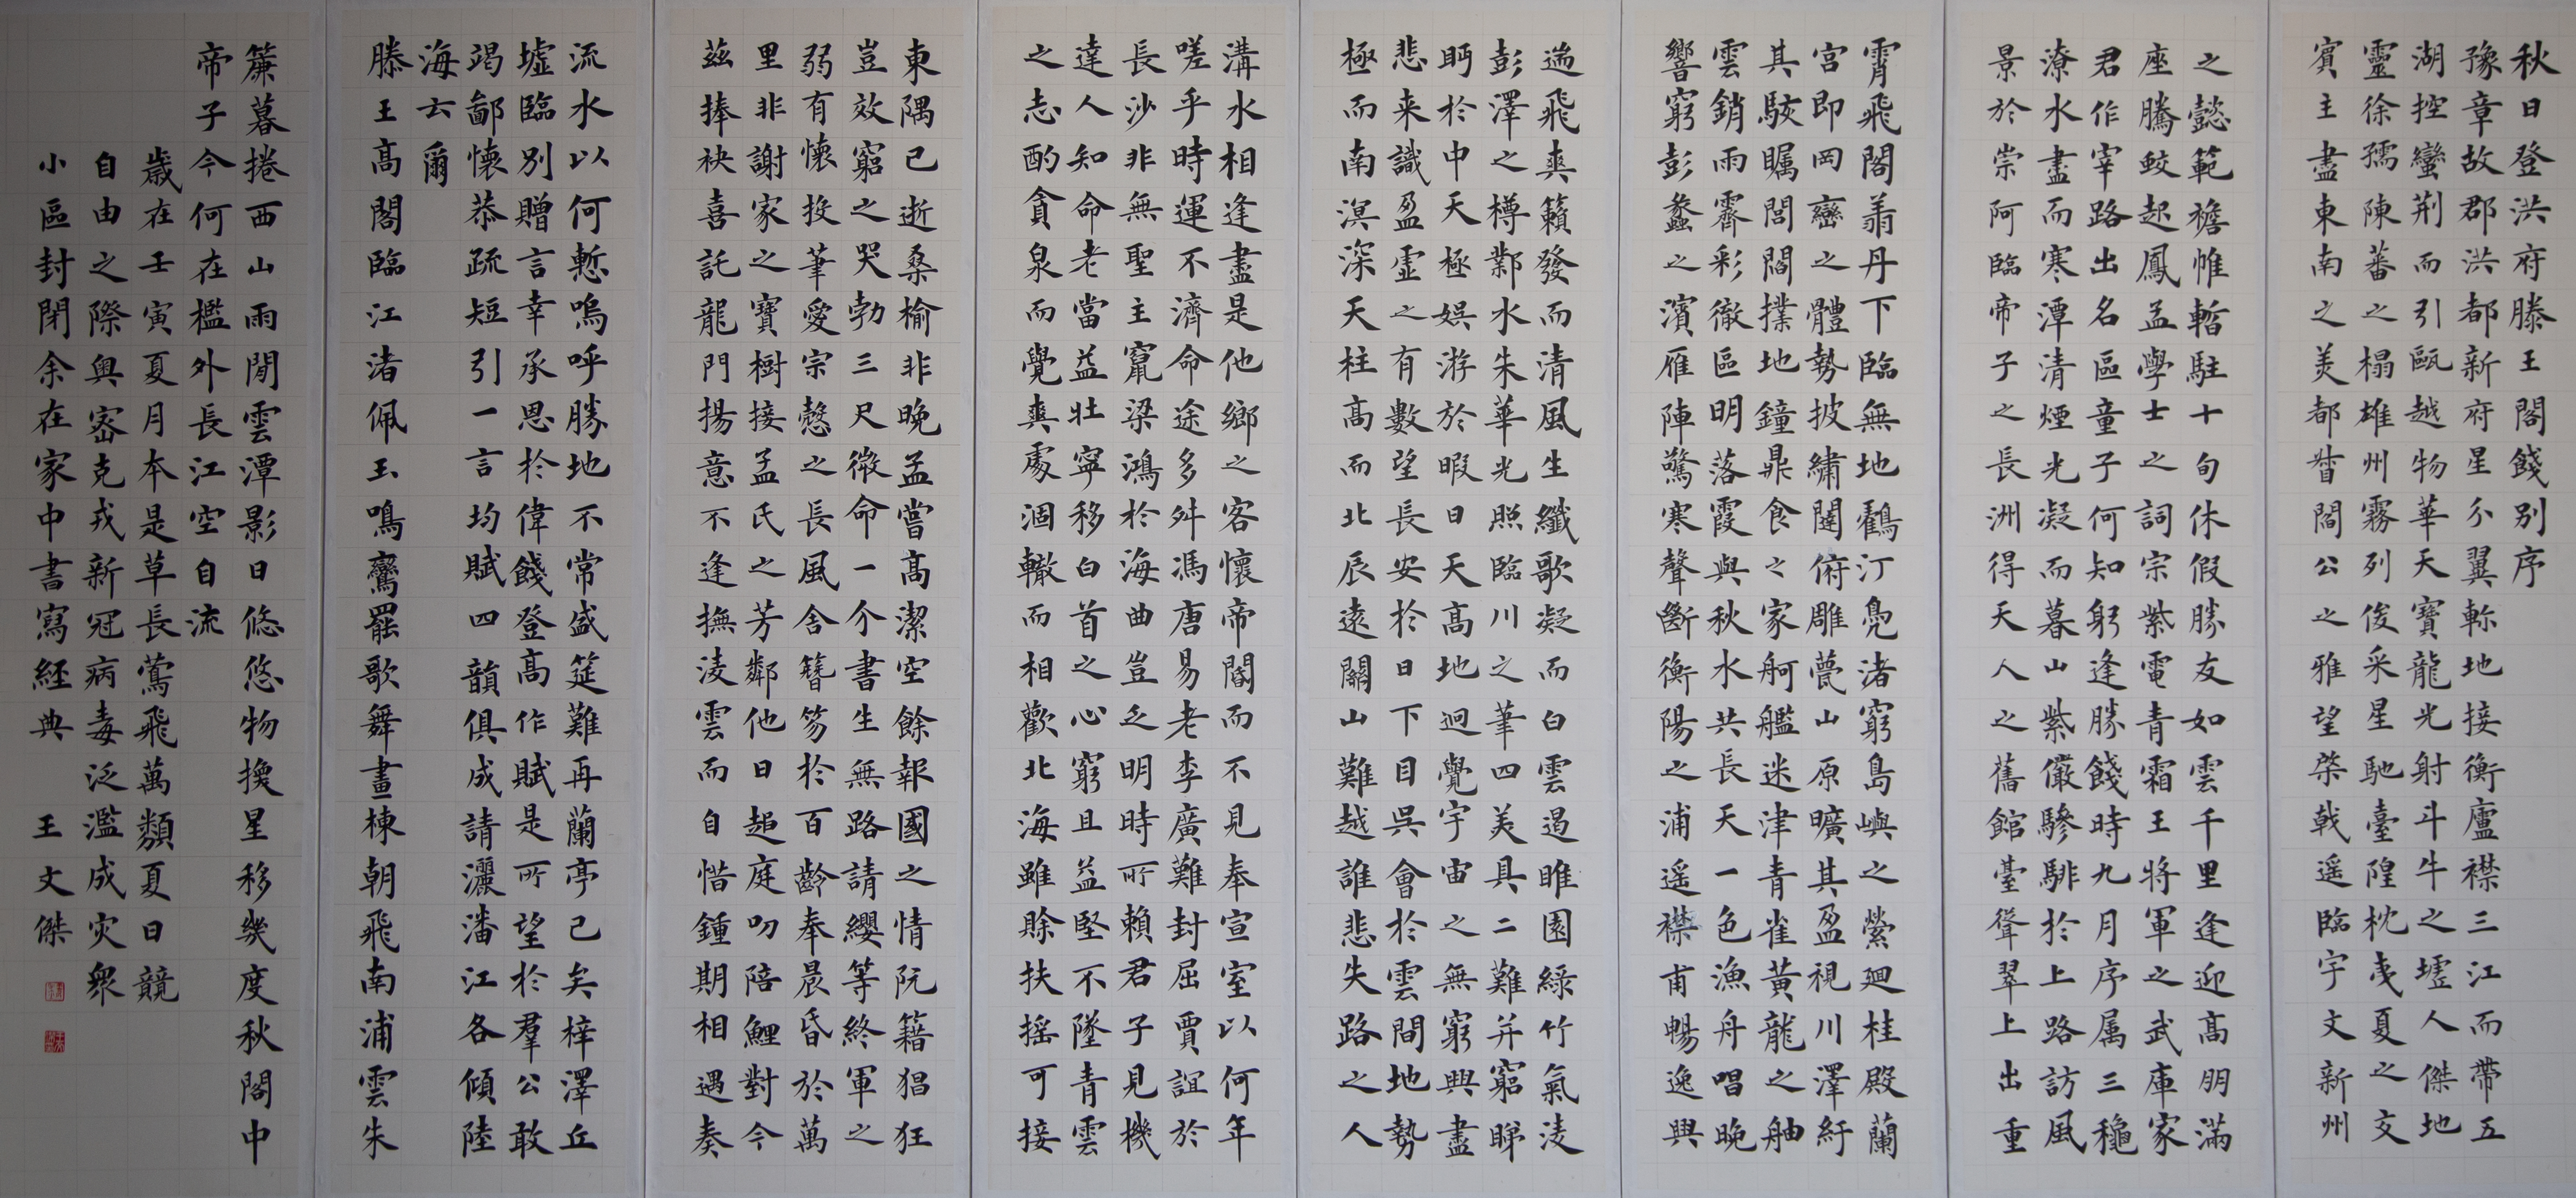 秋日登洪府滕王閣餞別序
豫章故郡洪都新府星分翼軫地接衡廬襟三江而帶五
湖控蠻荆而引甌越物華天寶龍光射斗牛之墟人傑地
靈徐孺陳蕃之榻雄州霧列俊采星馳臺隍枕夷夏之交
賓主盡東南之美都督閻公之雅望棨戟遥臨宇文新州
之懿範襜帷暫駐十旬休假勝友如雲千里逢迎高朋滿
座騰蛟起鳳孟學士之詞宗紫電青霜王將軍之武庫家
君作宰路出名區童子何知躬逢勝餞時九月序属三穐
潦水盡而寒潭清煙光凝而暮山紫儼驂騑於上路訪風
景於崇阿臨帝子之長洲得天人之舊館臺聳翠上出重
霄飛閣翔丹下臨無地鶴汀鳧渚窮島嶼之縈廻桂殿蘭
宮即岡巒之體勢披繡闥俯雕甍山原曠其盈視川澤紆
其駭矚閭閻撲地鐘鼎食之家舸艦迷津青雀黃龍之舳
雲銷雨霽彩徹區明落霞與秋水共長天一色漁舟唱晚
響窮彭蠡之濱雁陣驚寒聲斷衡陽之浦遥襟甫暢逸興
遄飛爽籟發而清風生纖歌凝而白雲遏睢園綠竹氣淩
彭澤之樽鄴水朱華光照臨川之筆四美具二難并窮睇
眄於中天極娯游於暇日天高地迥覺宇宙之無窮興盡
悲来識盈虛之有數望長安於日下目吳會於雲間地勢
極而南溟深天柱高而北辰遠關山難越誰悲失路之人
溝水相逢盡是他鄉之客懷帝閽而不見奉宣室以何年
嗟乎時運不濟命途多舛馮唐易老李廣難封屈賈誼於
長沙非無聖主竄梁鴻於海曲豈乏明時所賴君子見機
達人知命老當益壯寧移白首之心窮且益堅不墜青雲
之志酌貪泉而覺爽處涸轍而相歡北海雖賖扶摇可接
東隅已逝桑榆非晚孟嘗高潔空餘報國之情阮籍猖狂
豈效窮之哭勃三尺微命一介書生無路請纓等終軍之
弱有懷投筆愛宗愨之長風舍簪笏於百齡奉晨昏於萬
里非謝家之寶樹接孟氏之芳鄰他日趨庭叨陪鯉對今
茲捧袂喜託龍門揚意不逢撫淩雲而自惜鍾期相遇奏
流水以何慙嗚呼勝地不常盛筵難再蘭亭已矣梓澤丘
墟臨別贈言幸承恩於偉餞登高作賦是所望於羣公敢
竭鄙懷恭疏短引一言均賦四韻俱成請灑潘江各傾陸
海云爾
滕王高閣臨江渚佩玉鳴鸞罷歌舞畫棟朝飛南浦雲朱
簾暮捲西山雨閒雲潭影日悠悠物換星移幾度秋閣中
帝子今何在檻外長江空自流
歲在壬寅夏月本是草長鶯飛萬類夏日競
自由之際奧密克戎新冠病毒泛濫成灾衆
小區封閉余在家中書寫經典 王文傑